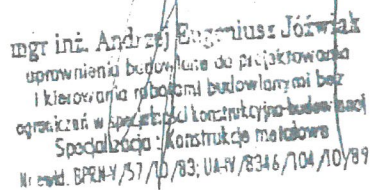 mgr inż. Andrzej Eugeniusz Jóźwiak
uprawnienia budowlane do projektowania
i kierowania robotami budowlanymi bez
ograniczeń w specjalności konstrukcyjno-budowlanej
Specjalizacja: Konstrukcje metalowe
Nr ewid. BPRN-V/57/10/83; UA-IV/8346/104/10/89